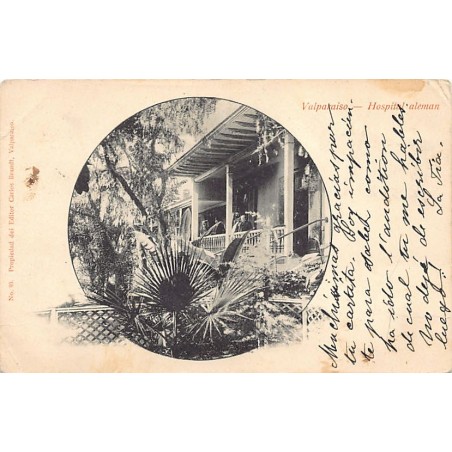 Valparaiso. — Hospital aleman
No. 91. Propiedad del Editor Carlos Brandt, Valparaiso.
Muchísimas gracias por
tu cartita. Soy
te para otabeh como
no solo l'andition
de cual tu me hables
no dejé de escribir
luego! La Tia.